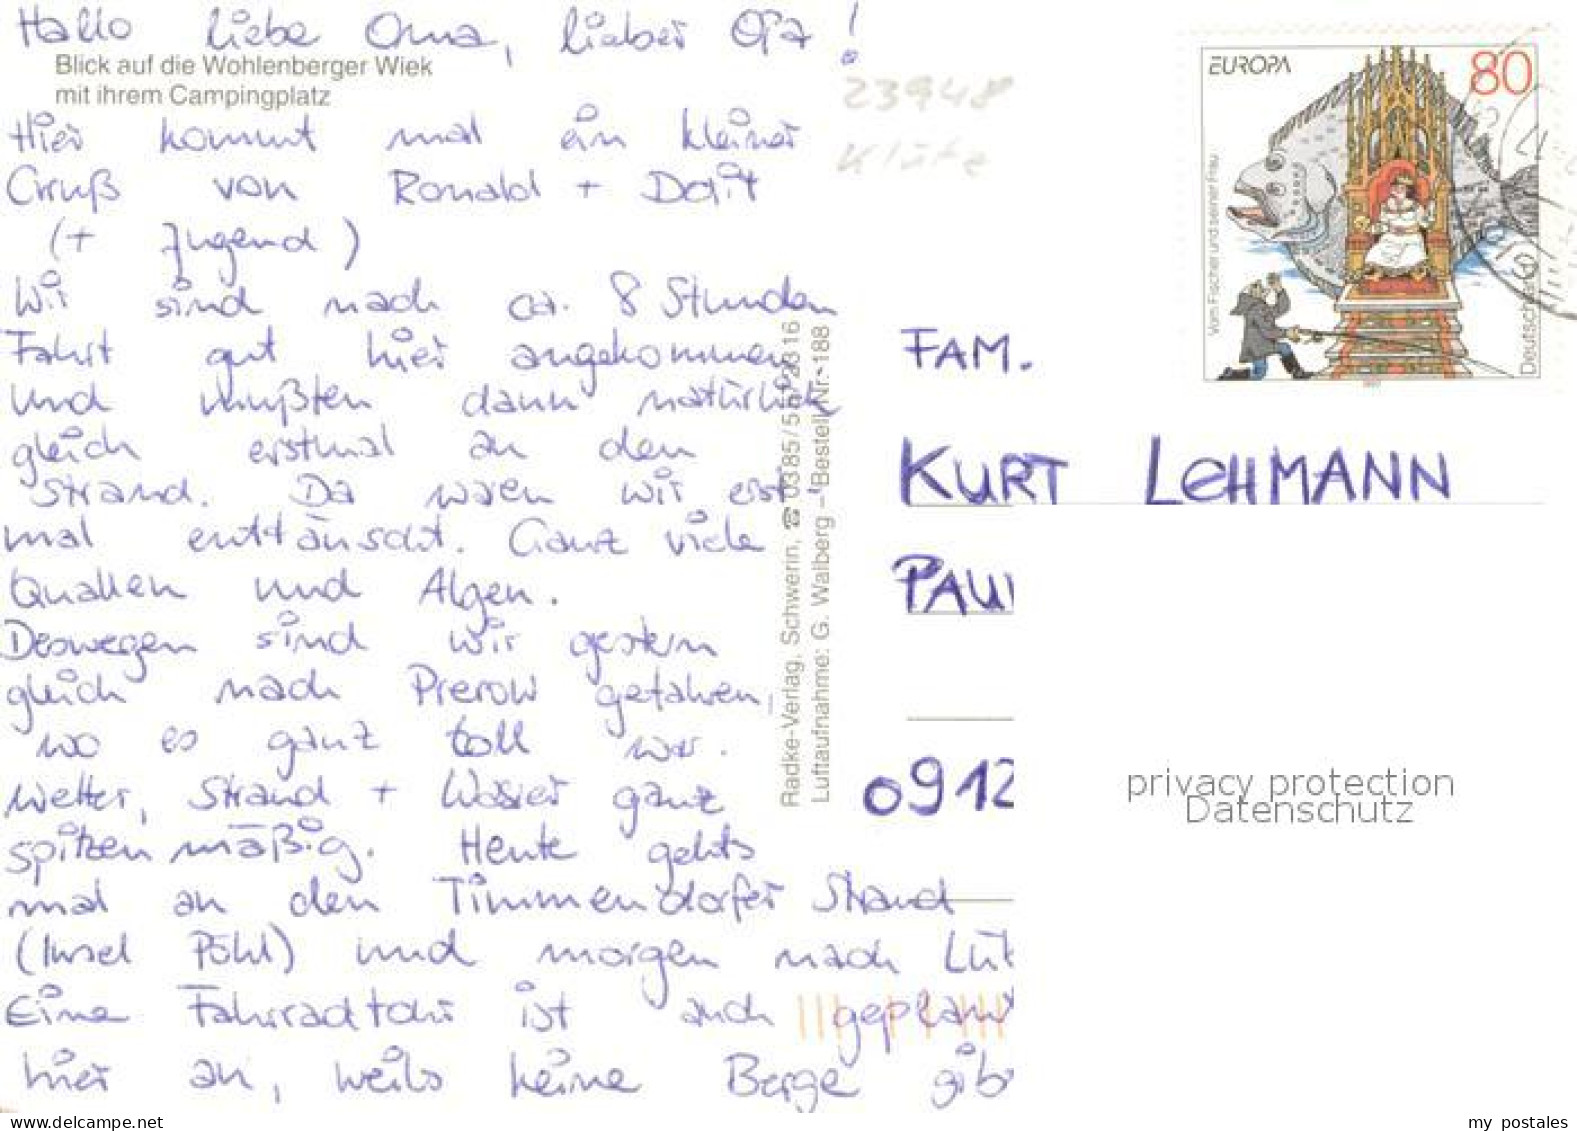 Hallo liebe Oma, lieber Opa !
Blick auf die Wohlenberger Wiek
mit ihrem Campingplatz
Hier kommt mal ein kleiner
Gruß von Ronald +
(+ Jugend)
Wir sind nach ca. 8 Stunden
Fahrt gut hier angekommen
und mußten dann natürlich
gleich erstmal an den
Strand. Da waren wir erst
mal enttäuscht. Ganz viele
Quallen und Algen.
Deswegen sind wir gestern
gleich nach Prerow gefahren,
wo es ganz toll war.
Wetter, Strand + Wasser ganz
spitzenmäßig. Heute gehts
mal an den Timmendorfer Strand
(Insel Pöhl) und morgen nach Lüt
Eine Fahrradtour ist auch geplant
hier an, weils keine Berge gib
Radke-Verlag, Schwerin, ☎ 0385/5
Luftaufnahme: G. Walberg – Bestell-Nr. 188
23948
Klütz
EUROPA
80
Vom Fischer und seiner Frau
Deutschland
FAM.
KURT LEHMANN
PAU
0912
privacy protection
Datenschutz
my postales